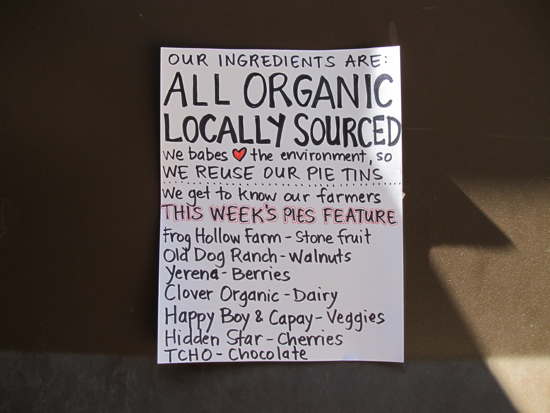 OUR INGREDIENTS ARE:
ALL ORGANIC
LOCALLY SOURCED
we babes ❤ the environment, so
WE REUSE OUR PIE TINS
we get to know our farmers
THIS WEEK'S PIES FEATURE
Frog Hollow Farm - Stone fruit
Old Dog Ranch - Walnuts
Yerena - Berries
Clover Organic - Dairy
Happy Boy & Capay - Veggies
Hidden Star - Cherries
TCHO - Chocolate